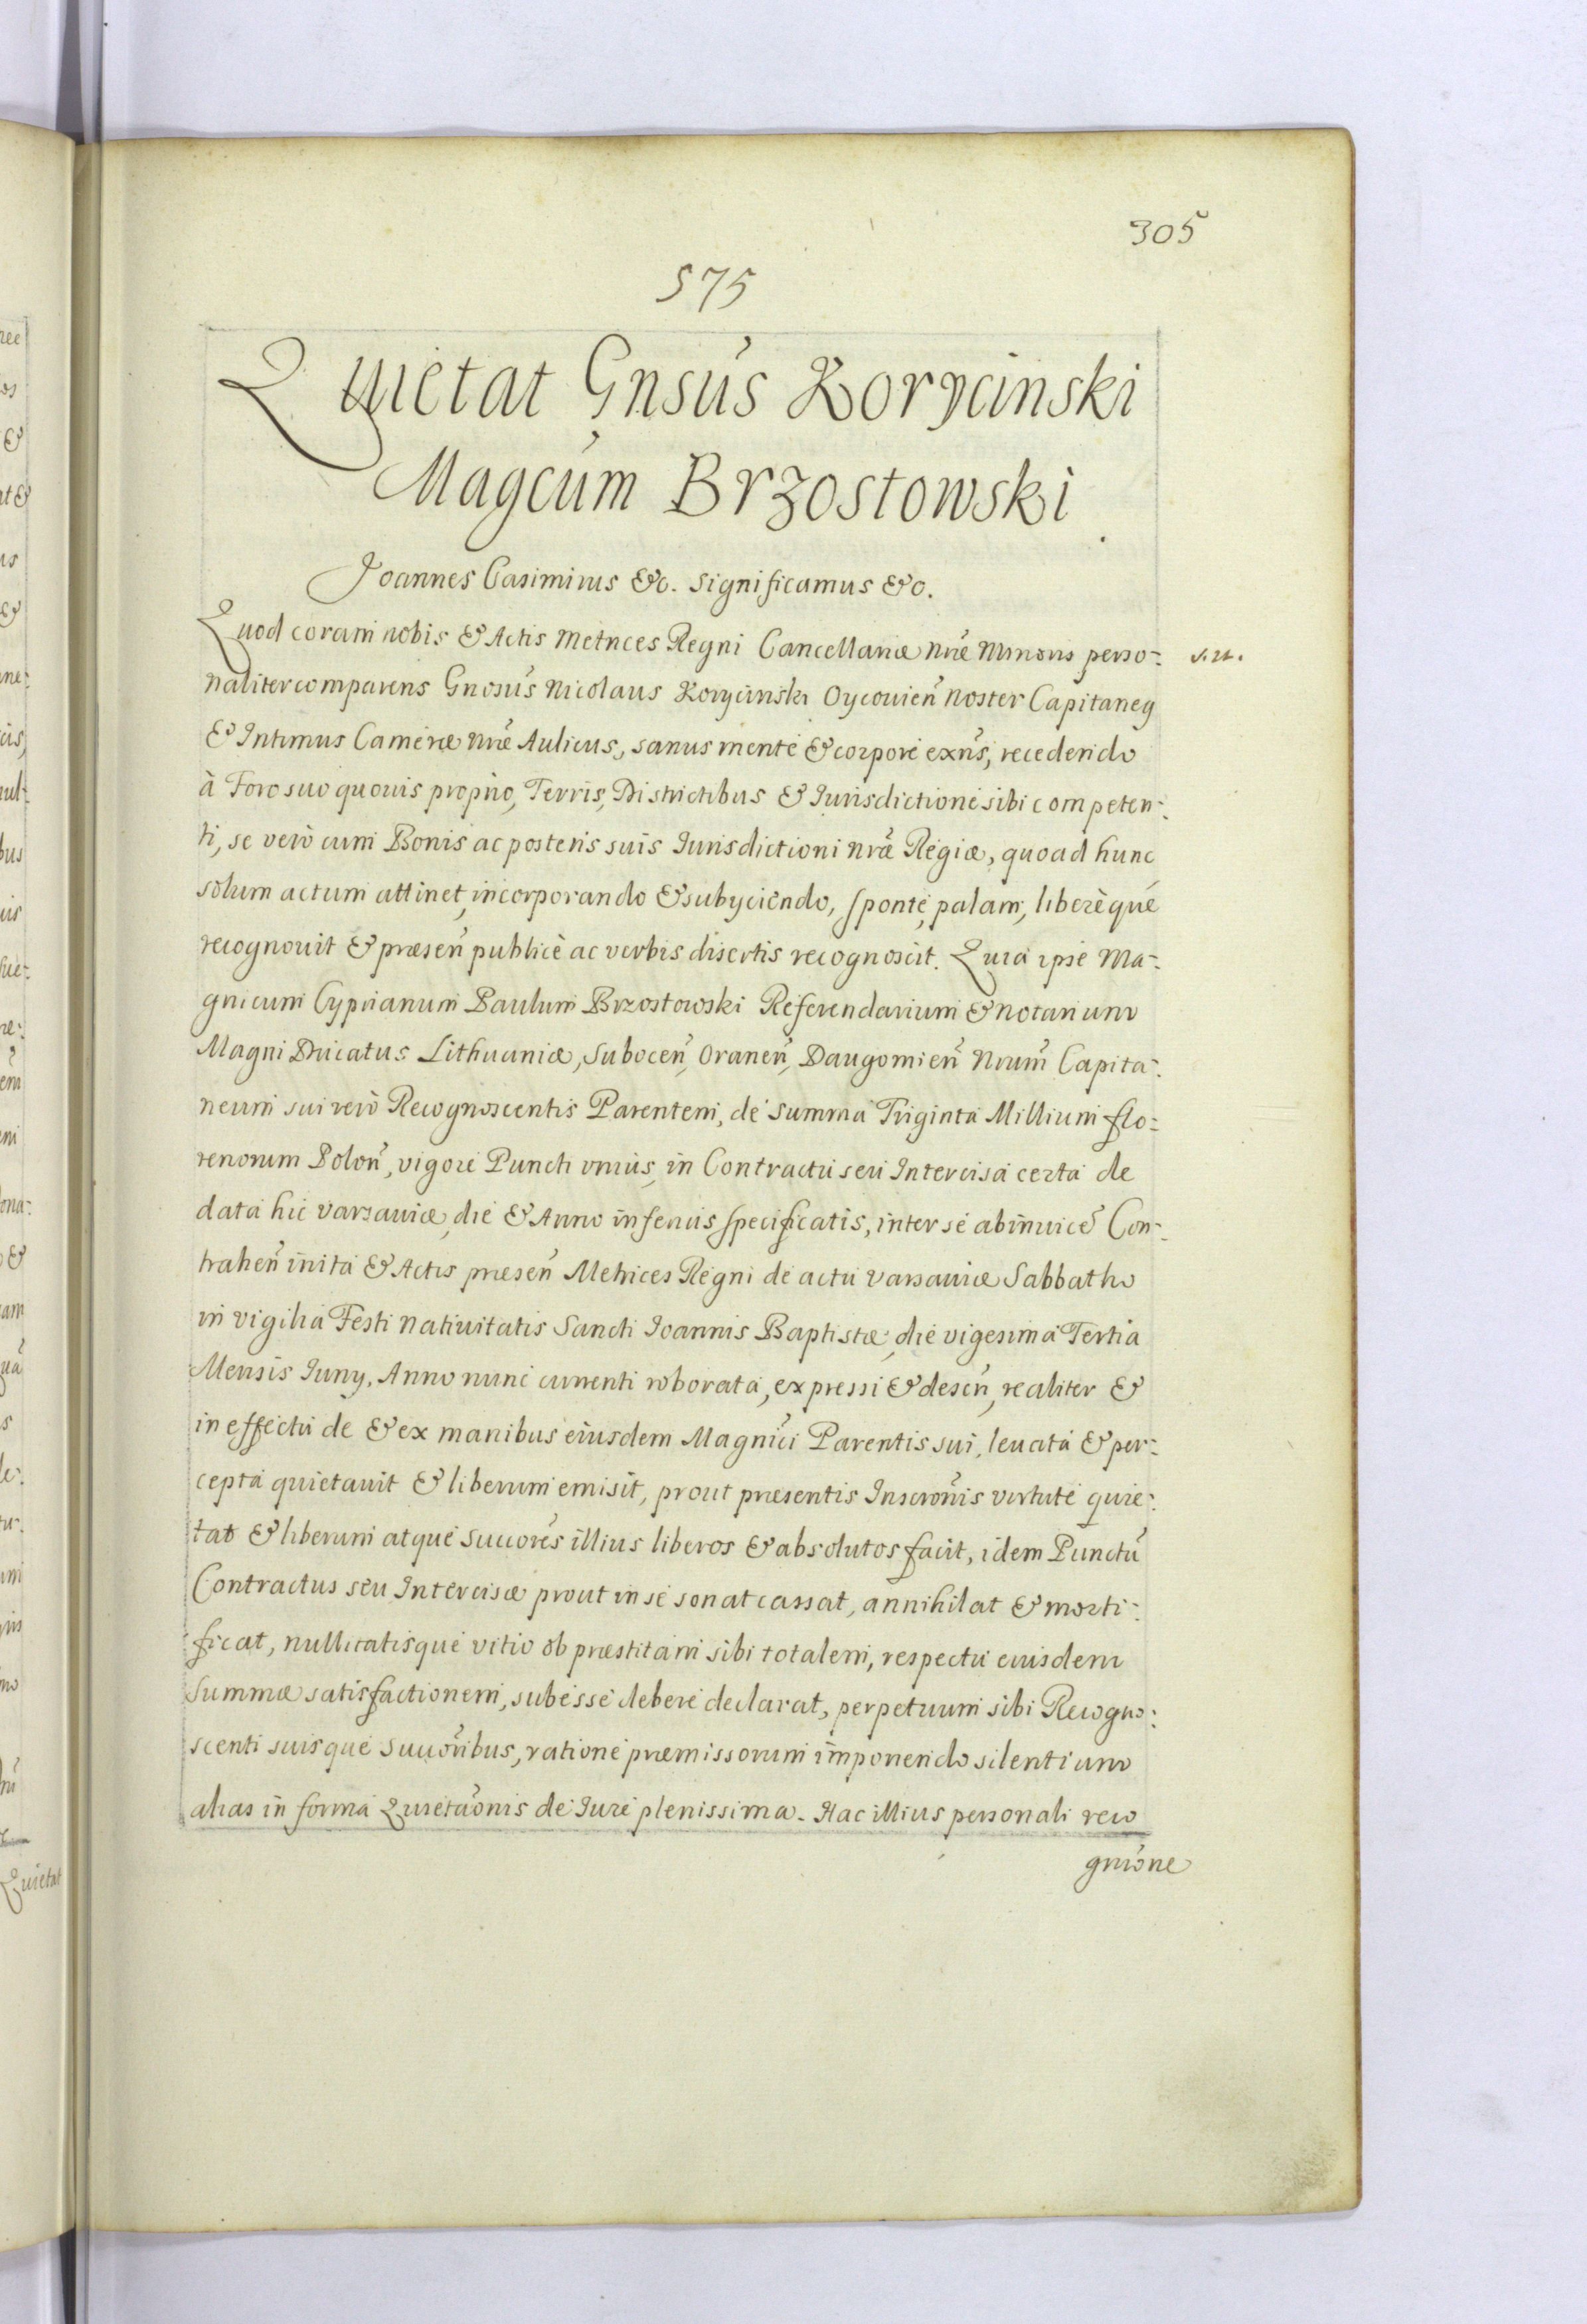 305
575
Quietat Gnsus Korycinski
Magcum Brzostowski
Joannes Casimirus &c. significamus &c.
Quod coram nobis & Actis Metrices Regni Cancellariæ nræ Minoris perso-
naliter comparens Gnosus Nicolaus Korycinski Oycouien noster Capitaneg
& Intimus Cameræ nræ Aulicus, sanus mente & corpore exns, recedendo
à Foro suo quouis proprio, Terris, Districtibus & Iurisdictione sibi competen-
ti, se verò cum Bonis ac posteris suis Iurisdictioni nræ Regiæ, quoad hunc
solum actum attinet, incorporando & subyciendo, sponte, palam, liberèque
recognouit & præsen publicè ac verbis disertis recognoscit. Quia ipse Ma-
gnicum Cyprianum Paulum Brzostowski Referendarium & notarium
Magni Ducatus Lithuaniæ, Subocen, Oranen, Daugomien Nrum Capita-
neum sui verò Recognoscentis Parentem, de summa Triginta Millium flo-
renorum Polon, vigore Puncti vnius, in Contractu seu Intercisa certa de
data hic varsauiæ, die & Anno inferius specificatis, inter se abinuice Con-
trahen inita & Actis præsen Metrices Regni de actu varsauiæ Sabbatho
in vigilia Festi natiuitatis Sancti Ioannis Baptistæ, die vigesima Tertia
Mensis Iuny, Anno nunc currenti roborata, expressi & descn, realiter &
in effectu de & ex manibus eiusdem Magnici Parentis sui, leuata & per-
cepta quietauit & liberum emisit, prout præsentis Inscronis virtute quie-
tat & liberum atque succores illius liberos & absolutos facit, idem Punctu
Contractus seu Intercisæ prout in se sonat cassat, annihilat & morti-
ficat, nullitatisque vitio ob præstitam sibi totalem, respectu eiusdem
Summæ satisfactionem, subesse debere declarat, perpetuum sibi Recogno-
scenti suisque succoribus, ratione præmissorum imponendo silentium
alias in forma Quietaonis de Iure plenissima. Hac illius personali reco
gnione